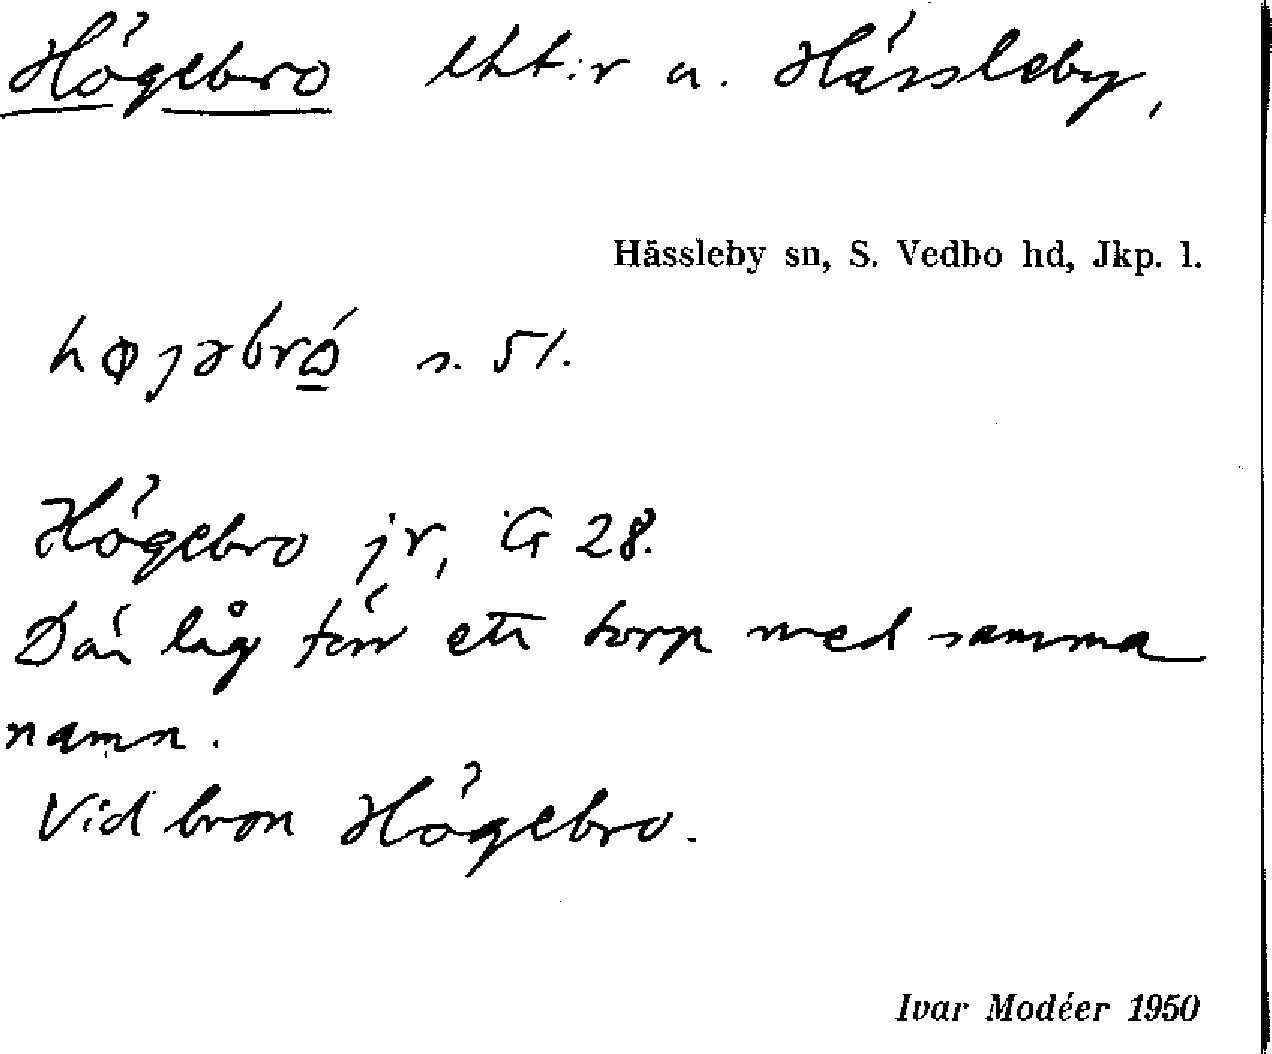 Högebro lht:r u. Hässleby,
Hässleby sn, S. Vedbo hd, Jkp. l.
s. 51.
Högebro jr, G 28.
Där låg förr ett torp med samma
namn.
Vid bron Högebro.
Ivar Modéer 1950